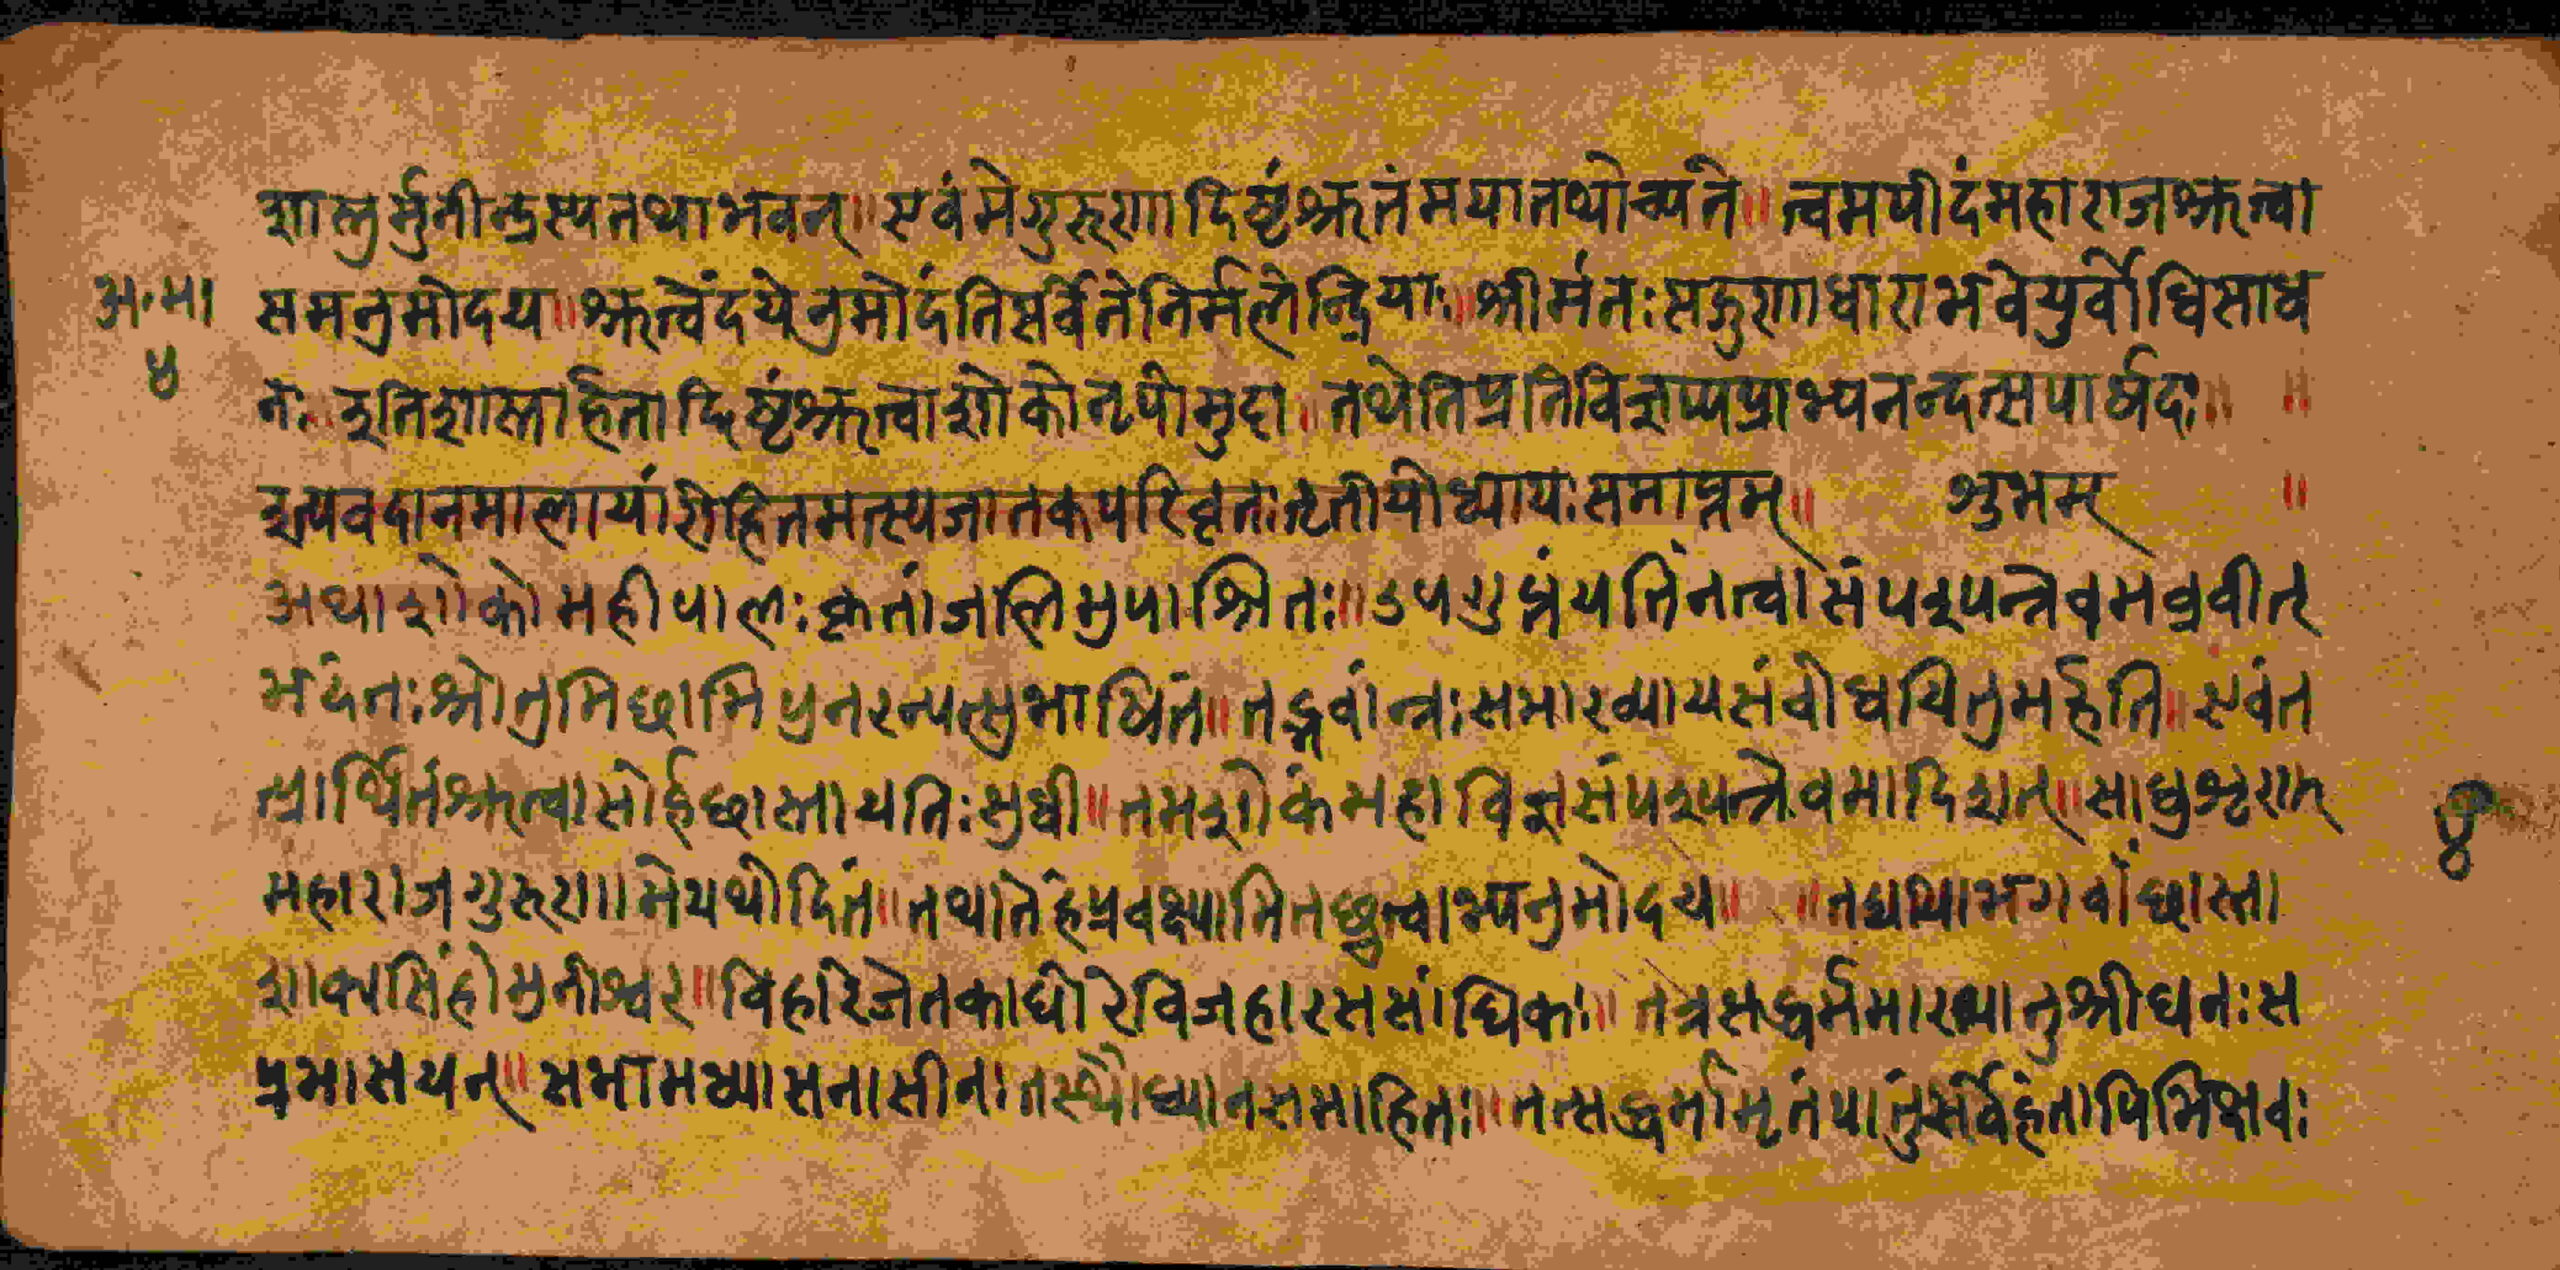 शास्तुर्मुनीन्द्रस्य तथाभवन्॥ एवं मे गुरूणादिष्टं श्रुतं मया तथोच्यते॥ त्वमपीदं महाराज श्रुत्वा
अ॰मा समनुमोदय॥ श्रुत्वेदं येनुमोदंति सर्वे ते निर्मलेन्द्रियाः॥ श्रीमंतः सद्गुणाधारा भवेयुर्वोधिसाध
४ ने॥ इति शास्त्रार्हतादिष्टं श्रुत्वाशोको नृपो मुदा॥ तथेति प्रतिविज्ञप्य प्राभ्यनन्दत्सपार्षदः॥ ॥
इत्यवदानमालायां रोहितमत्स्यजातकपरिवृतः तृतीयोध्यायः समाप्तम्॥ शुभम् ॥
अथाशोको महीपालः कृतांजलिमुपाश्रितः॥ उपगुप्तं यतिं नत्वा संपश्यन्नेवमव्रवीत्
भदंतः श्रोतुमिछामि पुनरन्यत्सुभाषितं॥ तद्भवान्नः समाख्याय संवोधयितुमर्हति॥ एवं त
त्प्रार्थितं श्रुत्वा सोर्हछास्ता यतिः सुधी॥ तमशोकं महाविज्ञ संपश्यन्नेवमादिशत्॥ साधु शृणु
महाराज गुरूणा मे यथोदितं॥ तथा तेहं प्रवक्ष्यामि तछ्रुत्वाभ्यनुमोदय॥ ॥ तद्यथा भगवांछास्ता
शाक्यसिंहो मुनीश्वर॥ विहारे जेतकाधीरे विजहार ससांघिकः॥ तत्र सद्धर्ममाख्यातु श्रीघनः स
प्रभासयन्॥ सभामध्यासनासीनः तस्थौ ध्यानसमाहितः॥ तत्सद्धर्मामृतं पातुं सर्वेर्हंतोपि भिक्षवः
४